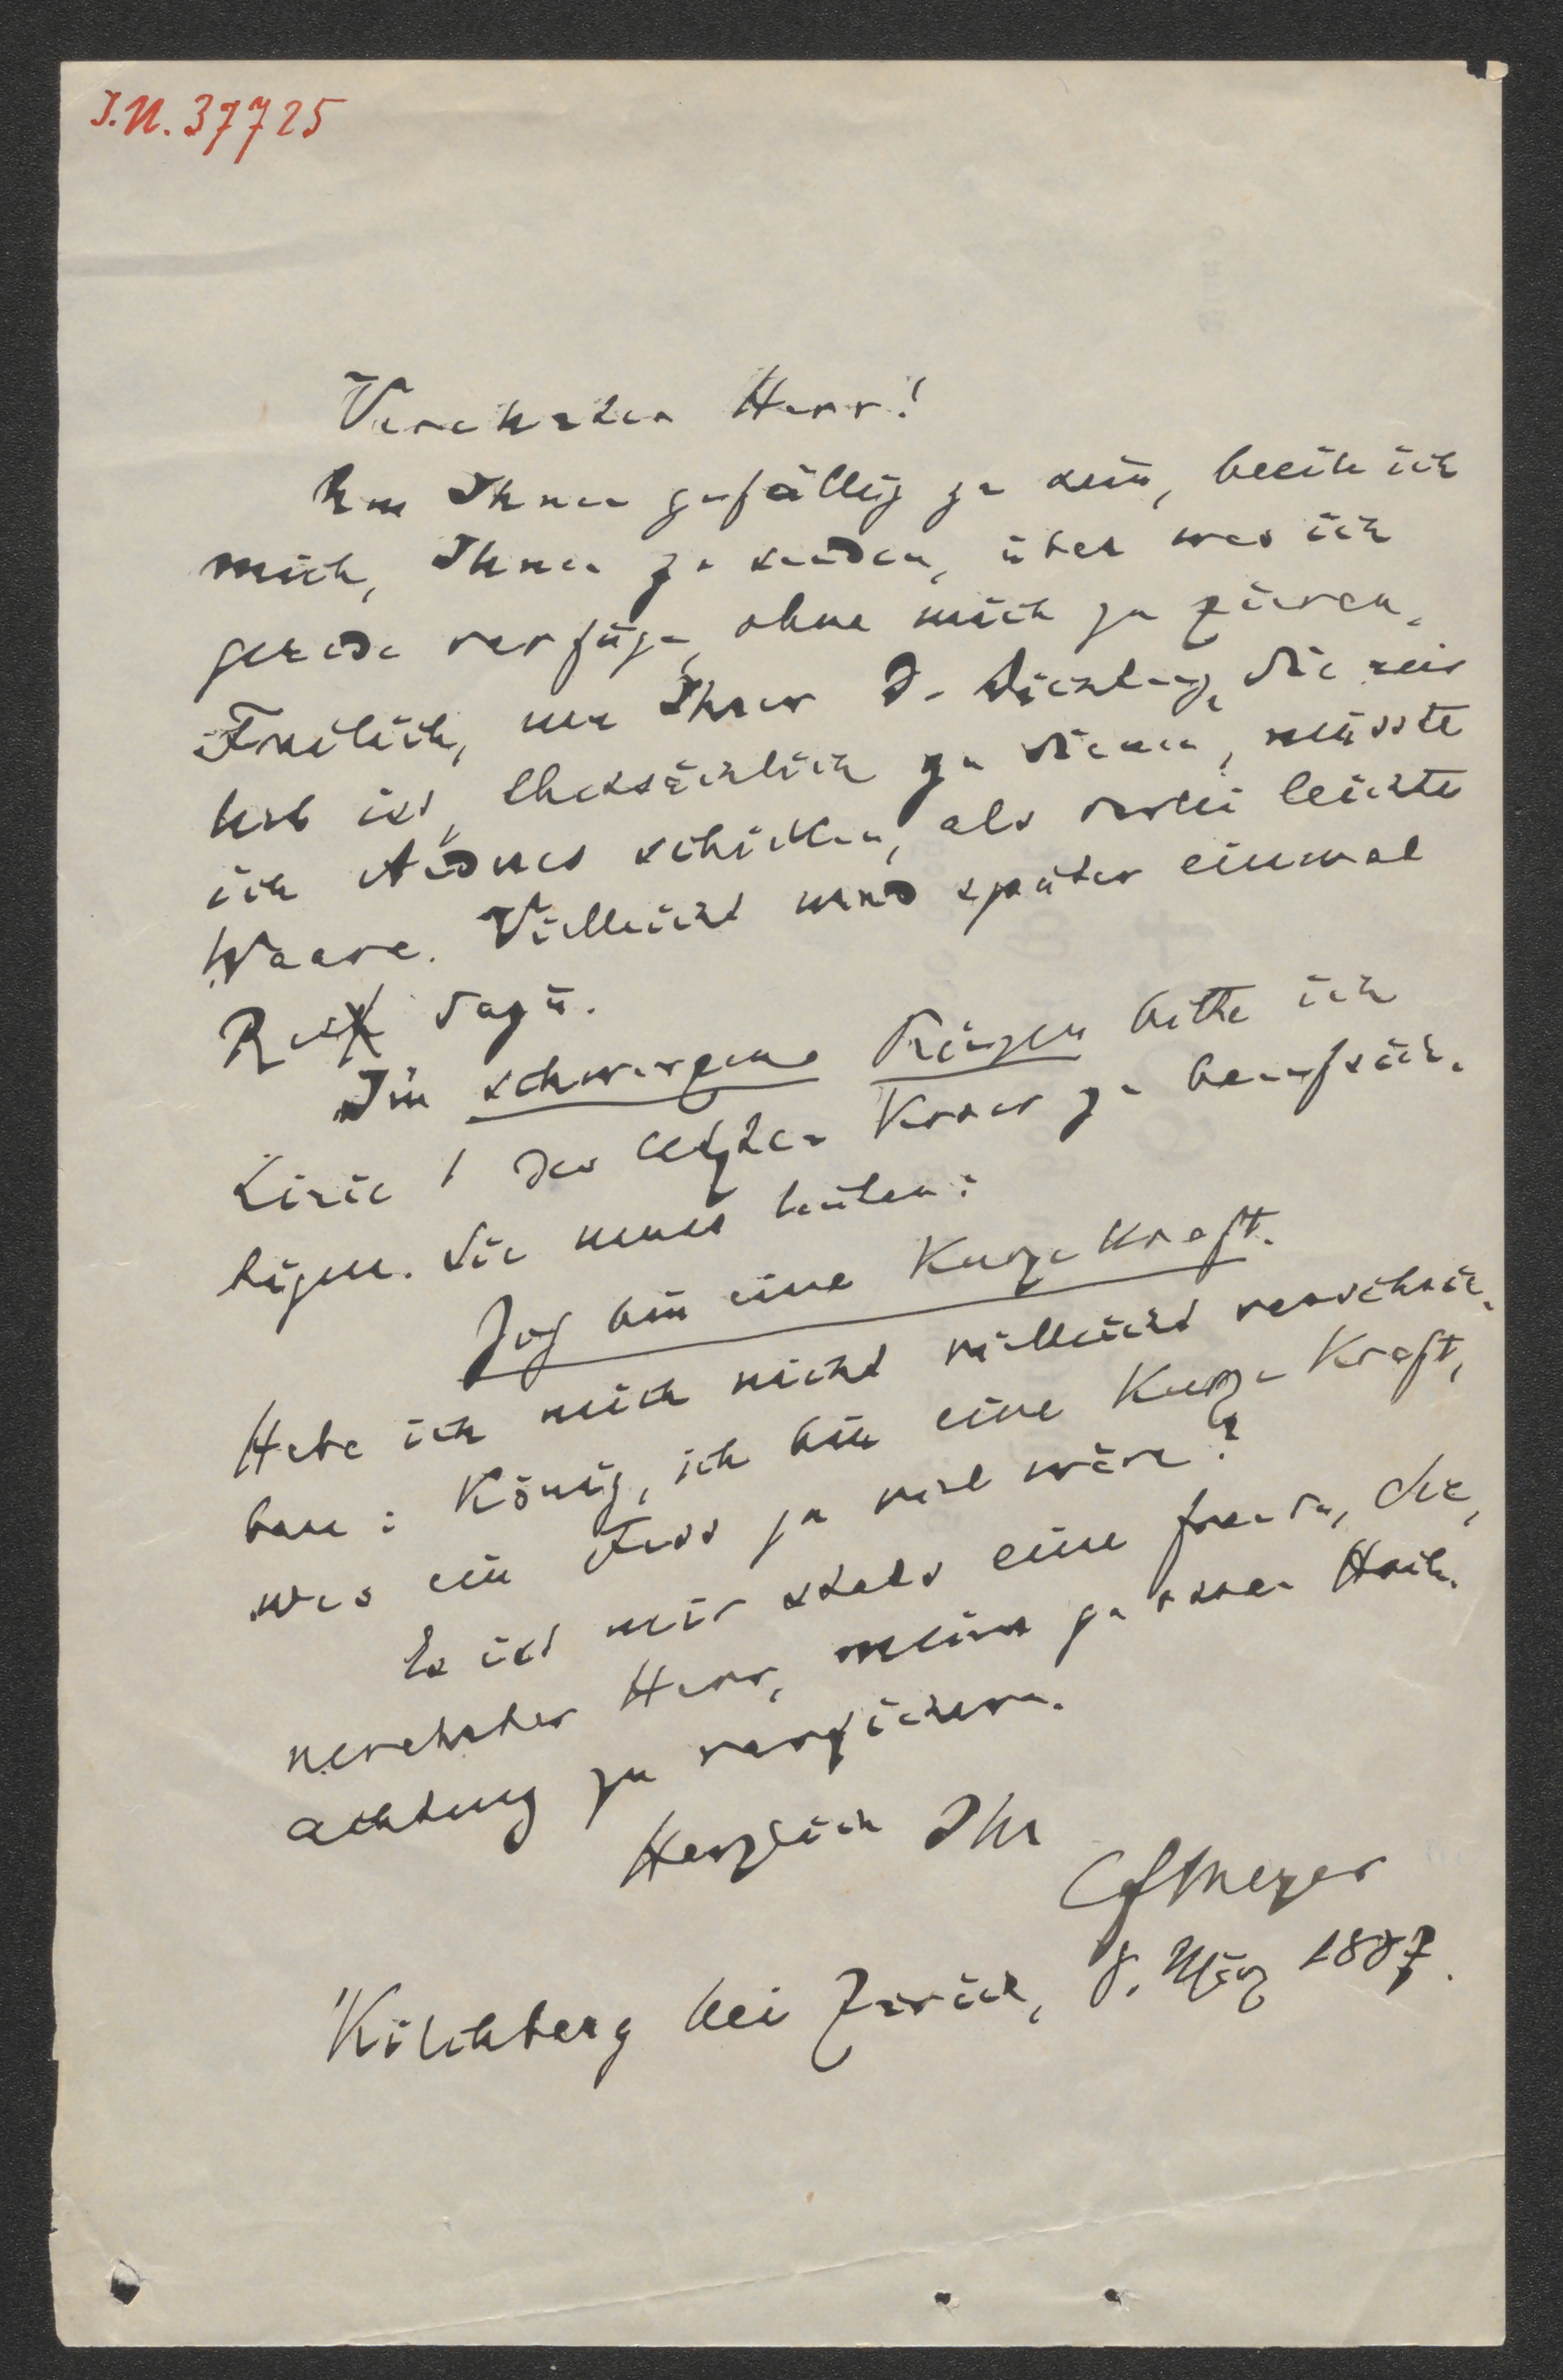 I.N. 37725
Verehrter Herr!
Um Ihnen gefällig zu sein, beeile ich
mich, Ihnen zu senden, über was ich
gerade verfüge, ohne mich zu zieren.
Freilich, um Ihrer D. Dichtung, die mir
lieb ist, thatsächlich zu dienen, müsste
ich Andres schicken, als leichte
Waare. Vielleicht wird später einmal
Rat dazu.
Im schwarzen Ringen bitte ich
den letzten Vers zu beaufsich-
tigen. Sie muss lauten:
Ich bin eine kurze Kraft.
Habe ich mich nicht vielleicht verschrie-
ben: König, ich bin eine kurze Kraft,
was ein Fuss zu viel wäre?
Es ist mir stets eine Freude,
verehrter Herr, meine Hoch-
achtung zu versichern.
Herzlich Ihr
CFMeyer
Kilchberg bei Zürich, 8. März 1887.